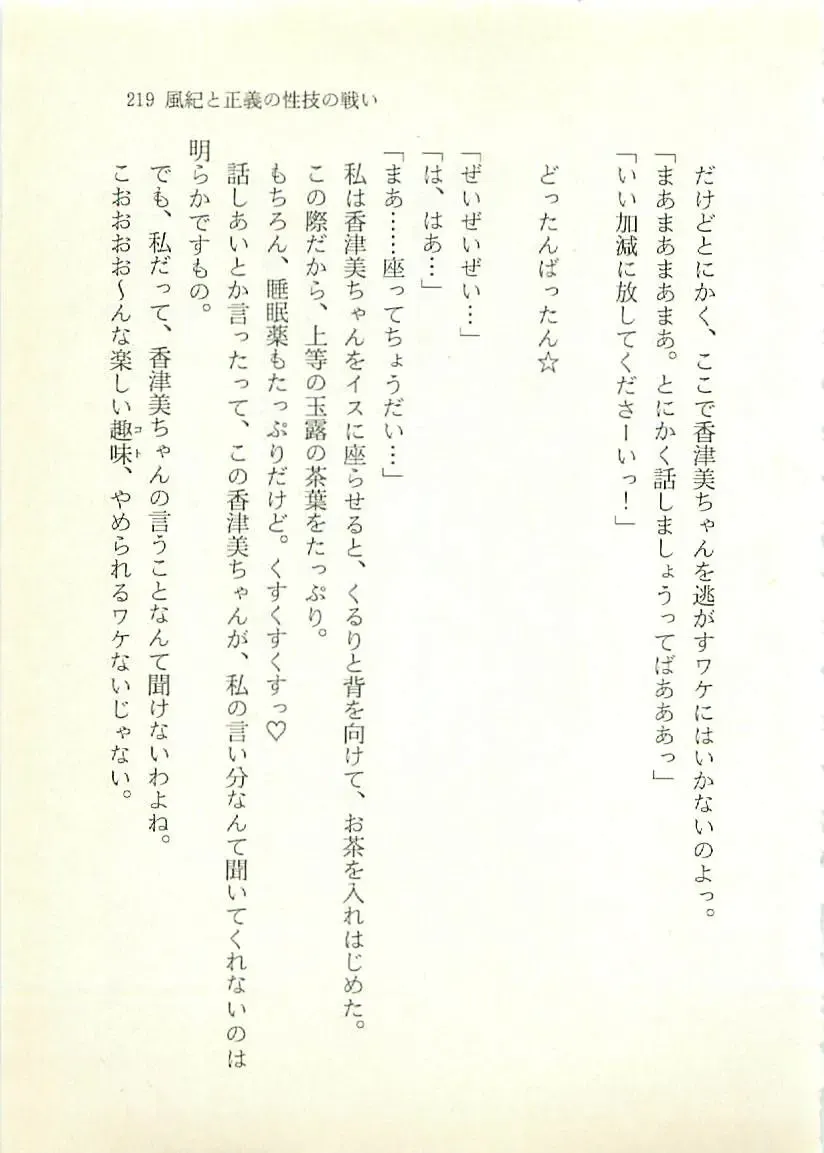 219 風紀と正義の性技の戦い
だけどとにかく、ここで香津美ちゃんを逃がすワケにはいかないのよっ。
「まあまあまあまあ。とにかく話しましょうってばあああっ」
「いい加減に放してくださーいっ！」
どったんばったん☆
「ぜいぜいぜい…」
「は、はあ…」
「まあ……座ってちょうだい…」
私は香津美ちゃんをイスに座らせると、くるりと背を向けて、お茶を入れはじめた。
この際だから、上等の玉露の茶葉をたっぷり。
もちろん、睡眠薬もたっぷりだけど。くすくすくすっ♡
話しあいとか言ったって、この香津美ちゃんが、私の言い分なんて聞いてくれないのは
明らかですもの。
でも、私だって、香津美ちゃんの言うことなんて聞けないわよね。
こおおおお～んな楽しい趣味コト、やめられるワケないじゃない。